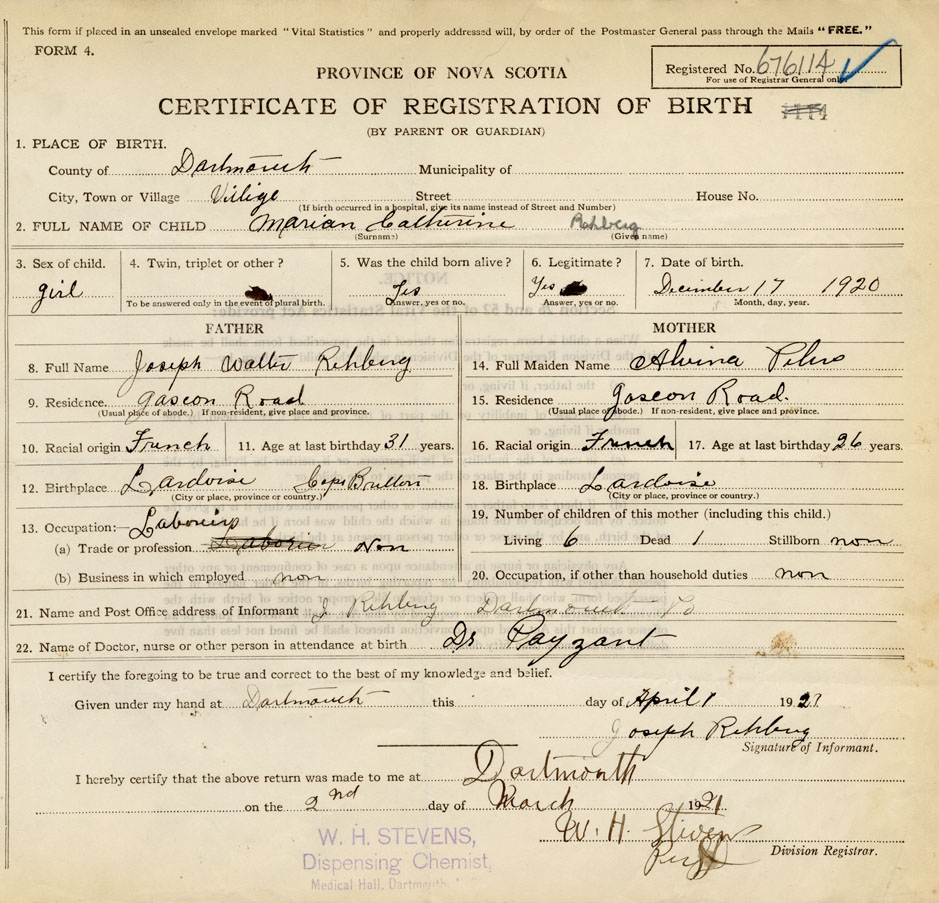 This form if placed in an unsealed envelope marked "Vital Statistics" and properly addressed will, by order of the Postmaster General pass through the Mails "FREE."
FORM 4.
Registered No. 676114
For use of Registrar General only.
PROVINCE OF NOVA SCOTIA
CERTIFICATE OF REGISTRATION OF BIRTH
(BY PARENT OR GUARDIAN)
1. PLACE OF BIRTH.
County of Dartmouth Municipality of
City, Town or Village Villige Street House No.
(If birth occurred in a hospital, give its name instead of Street and Number)
2. FULL NAME OF CHILD Marian Catherine Rehberg
(Surname) (Given name)
3. Sex of child. 4. Twin, triplet or other ? 5. Was the child born alive ? 6. Legitimate ? 7. Date of birth.
girl Yes Yes December 17 1920
To be answered only in the event of plural birth. Answer, yes or no. Answer, yes or no. Month, day, year.
FATHER MOTHER
8. Full Name Joseph Walter Rehberg 14. Full Maiden Name Alvina
9. Residence. Gascon Road 15. Residence Gascon Road.
(Usual place of abode.) If non-resident, give place and province. (Usual place of abode.) If non-resident, give place and province.
10. Racial origin French 11. Age at last birthday 31 years. 16. Racial origin French 17. Age at last birthday 26 years.
12. Birthplace Lardoise Cape Britton 18. Birthplace Lardoise
(City or place, province or country.) (City or place, province or country.)
13. Occupation:— 19. Number of children of this mother (including this child.)
(a) Trade or profession non Living 6 Dead 1 Stillborn non
(b) Business in which employed non 20. Occupation, if other than household duties non
21. Name and Post Office address of Informant J Rehberg Dartmouth
22. Name of Doctor, nurse or other person in attendance at birth Dr Payzant
I certify the foregoing to be true and correct to the best of my knowledge and belief.
Given under my hand at Dartmouth this day of April 1 1921
Joseph Rehberg
Signature of Informant.
I hereby certify that the above return was made to me at Dartmouth
on the 2nd day of March 1921
W. H. Stevens
Division Registrar.
W. H. STEVENS,
Dispensing Chemist,
Medical Hall, Dartmouth, N. S.